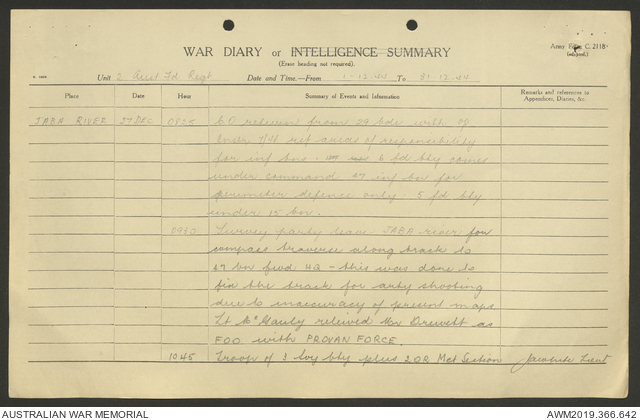 WAR DIARY or INTELLIGENCE SUMMARY
Army Form C. 2118
(Erase heading not required).
Unit 2 Aust Fd Regt Date and Time.—From 1.12.44 To 31.12.44
Place Date Hour Summary of Events and Information Remarks and references to Appendices, Diaries, &c.
JABA RIVER 27 DEC 0825 CO returns from 29 bde with Op
Instr 7/44 ref areas of responsibility
for inf bns. 6 fd bty comes
under command 47 inf bn for
perimeter defence only. 5 fd bty
under 15 bn.
0930 Survey party leave JABA river for
compass traverse along track to
47 bn fwd HQ - this was done to
fix the track for arty shooting
due to inaccuracy of present maps
Lt relieved Drewitt as
FOO with PROVAN FORCE.
1045 Troop of 3 Svy bty plus 2 OR Met Section Lieut
AUSTRALIAN WAR MEMORIAL AWM2019.366.642